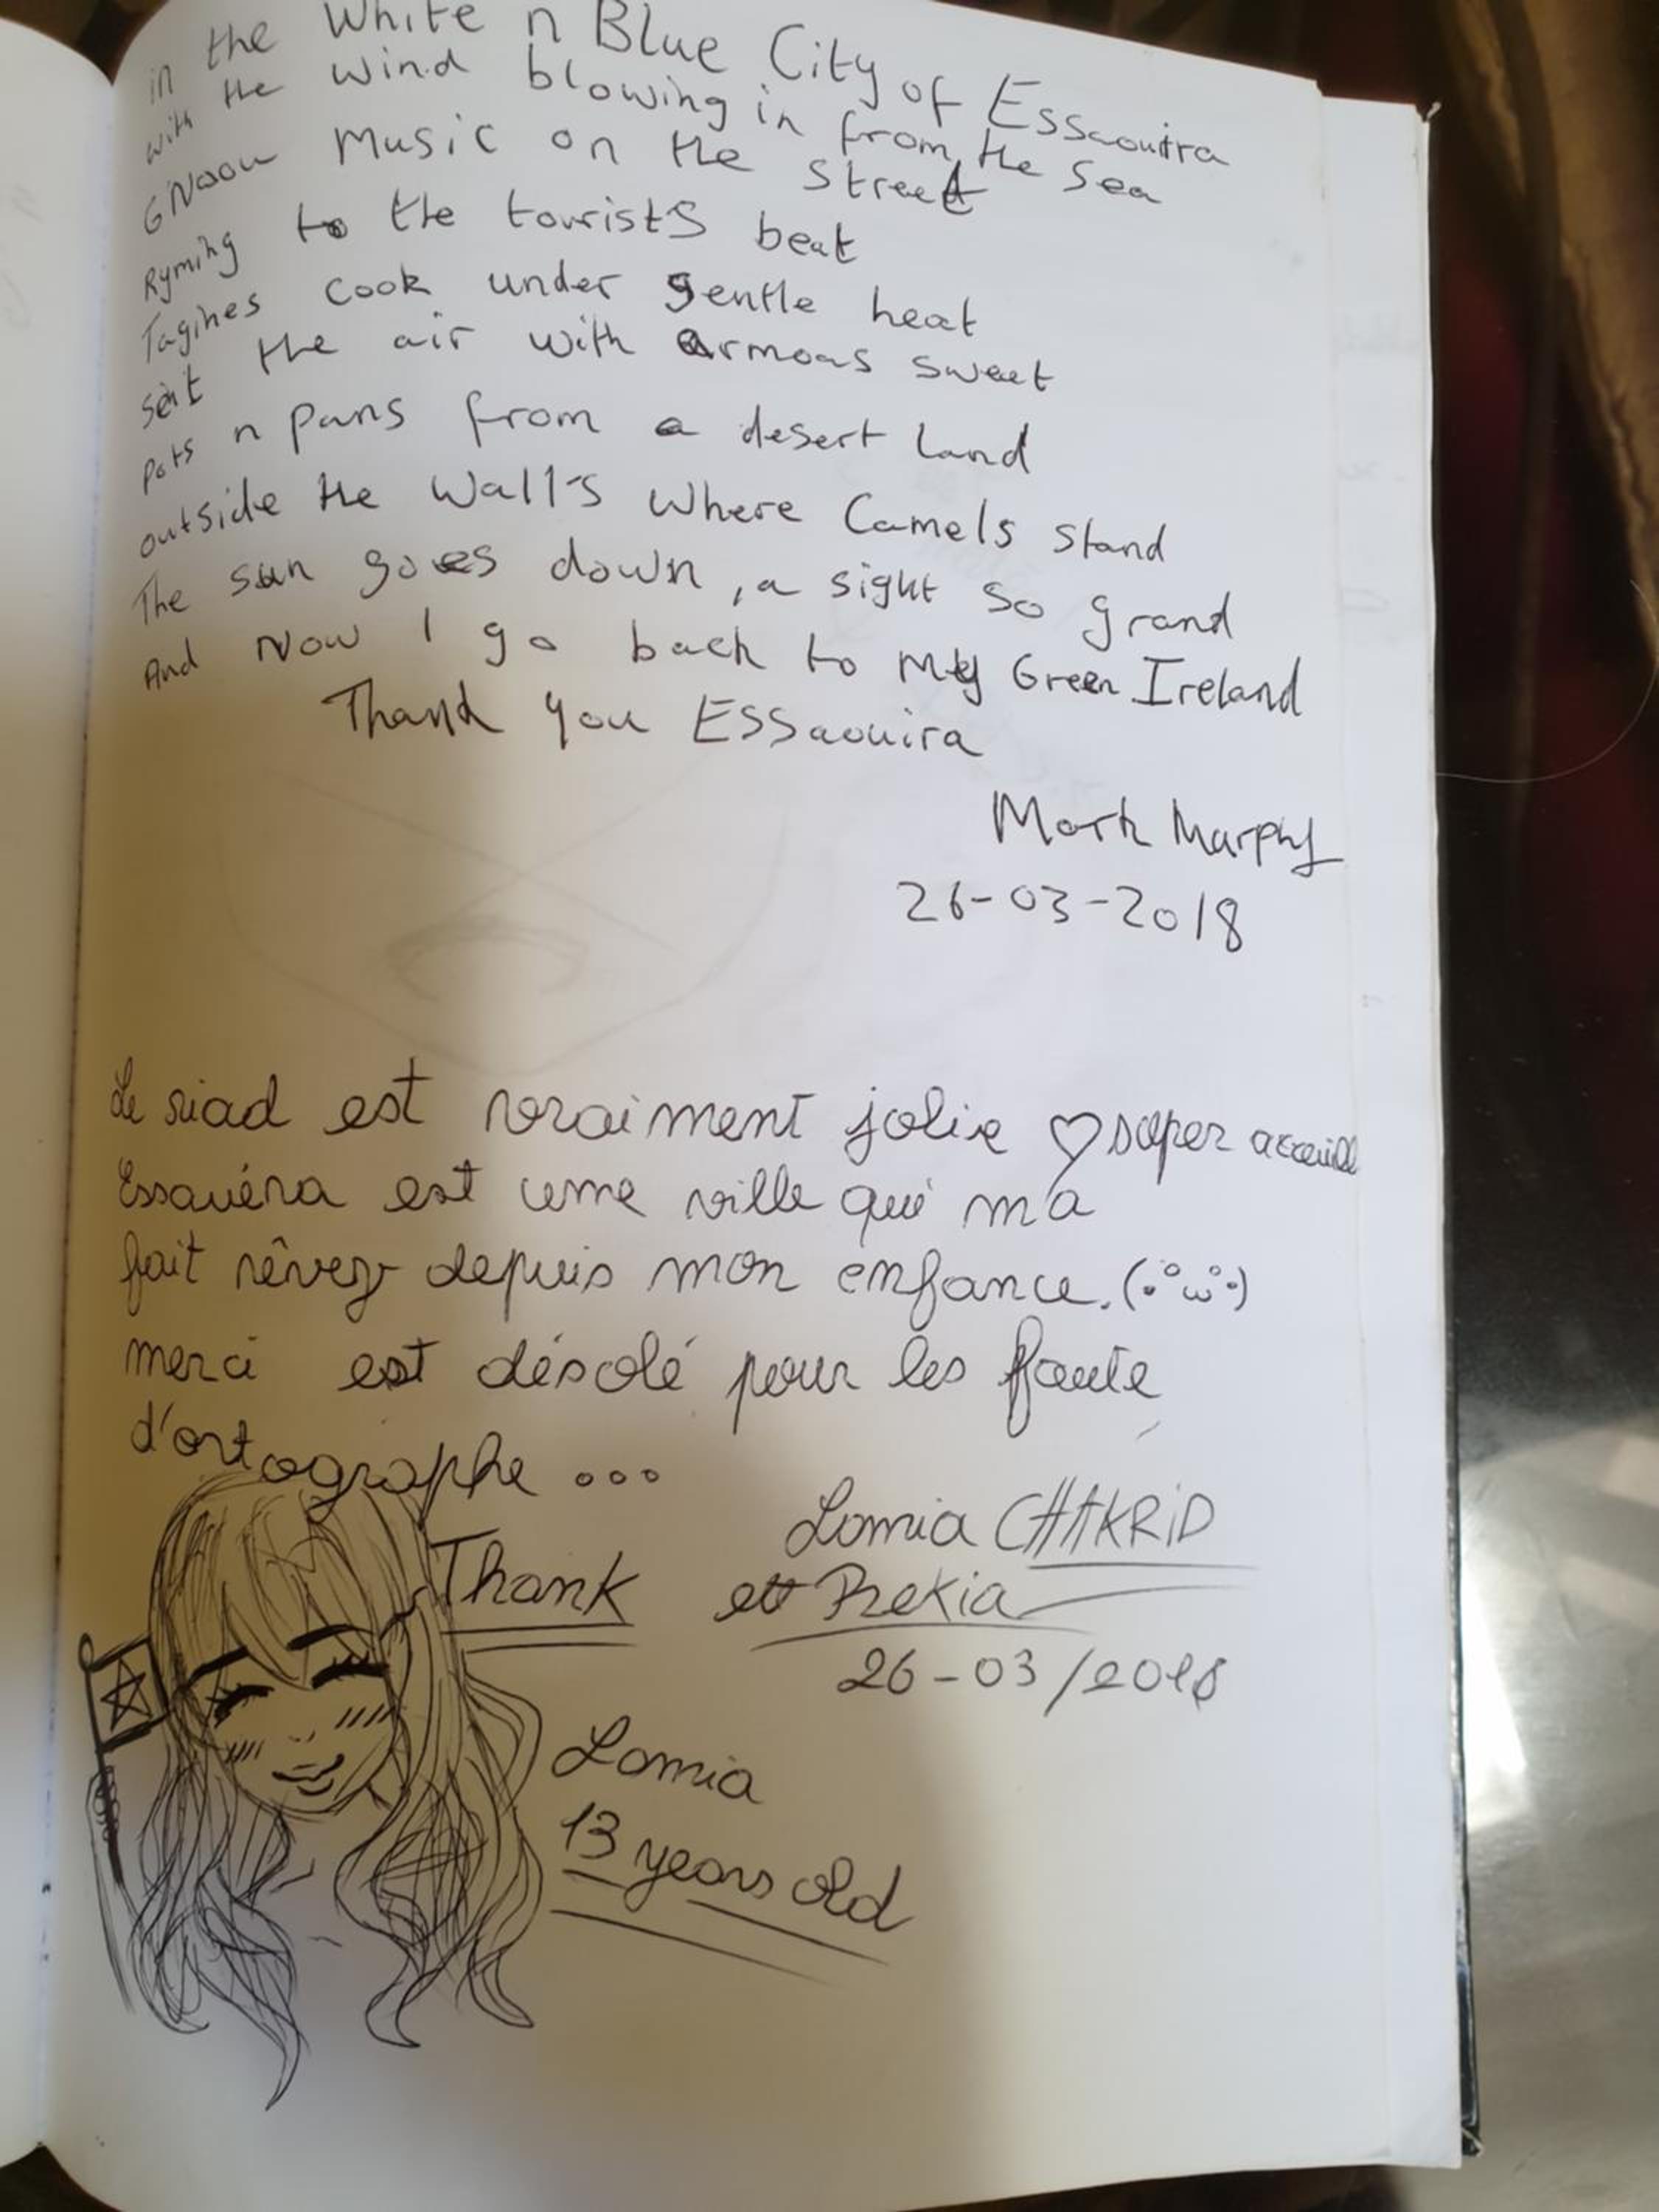 in the White n Blue City of Essaouira
with the wind blowing in from the Sea
GNaou Music on the Street
Ryming to the tourists beat
Tagines cook under gentle heat
sent the air with armoas sweet
pots n pans from a desert land
outside the Walls Where Camels stand
The sun goes down, a sight so grand
And Now I go back to My Green Ireland
Thank you ESSaouira
Mark Murphy
26-03-2018
Le riad est vraiment jolie ♡ super acceuill
Essauéra est une ville qui m'a
fait rêver depuis mon enfance. (:°ω°:)
merci est désolé pour les faute
d'ortographe ...
Lamia CHAKRiD
Thank
et Rekia
26-03/2018
Lamia
13 years old